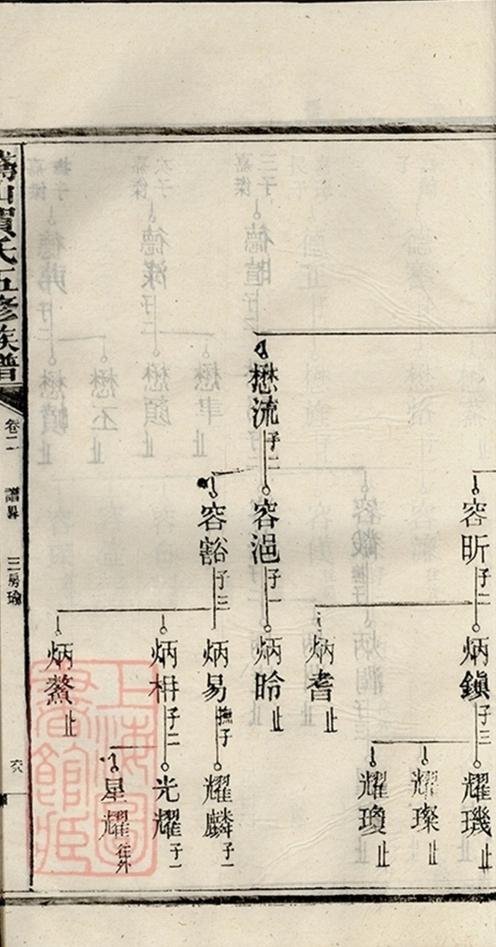 容昕子二
炳鎮子三
耀璣止
耀璨止
耀瓊止
炳耆止
懋流子二
容浥子一
炳昤止
容豁子三
炳易撫子
耀麟子一
炳枏子二
光耀子一
星耀往外
炳鰲止
賀氏五修族譜
卷二
三房瑜
上海圖書館